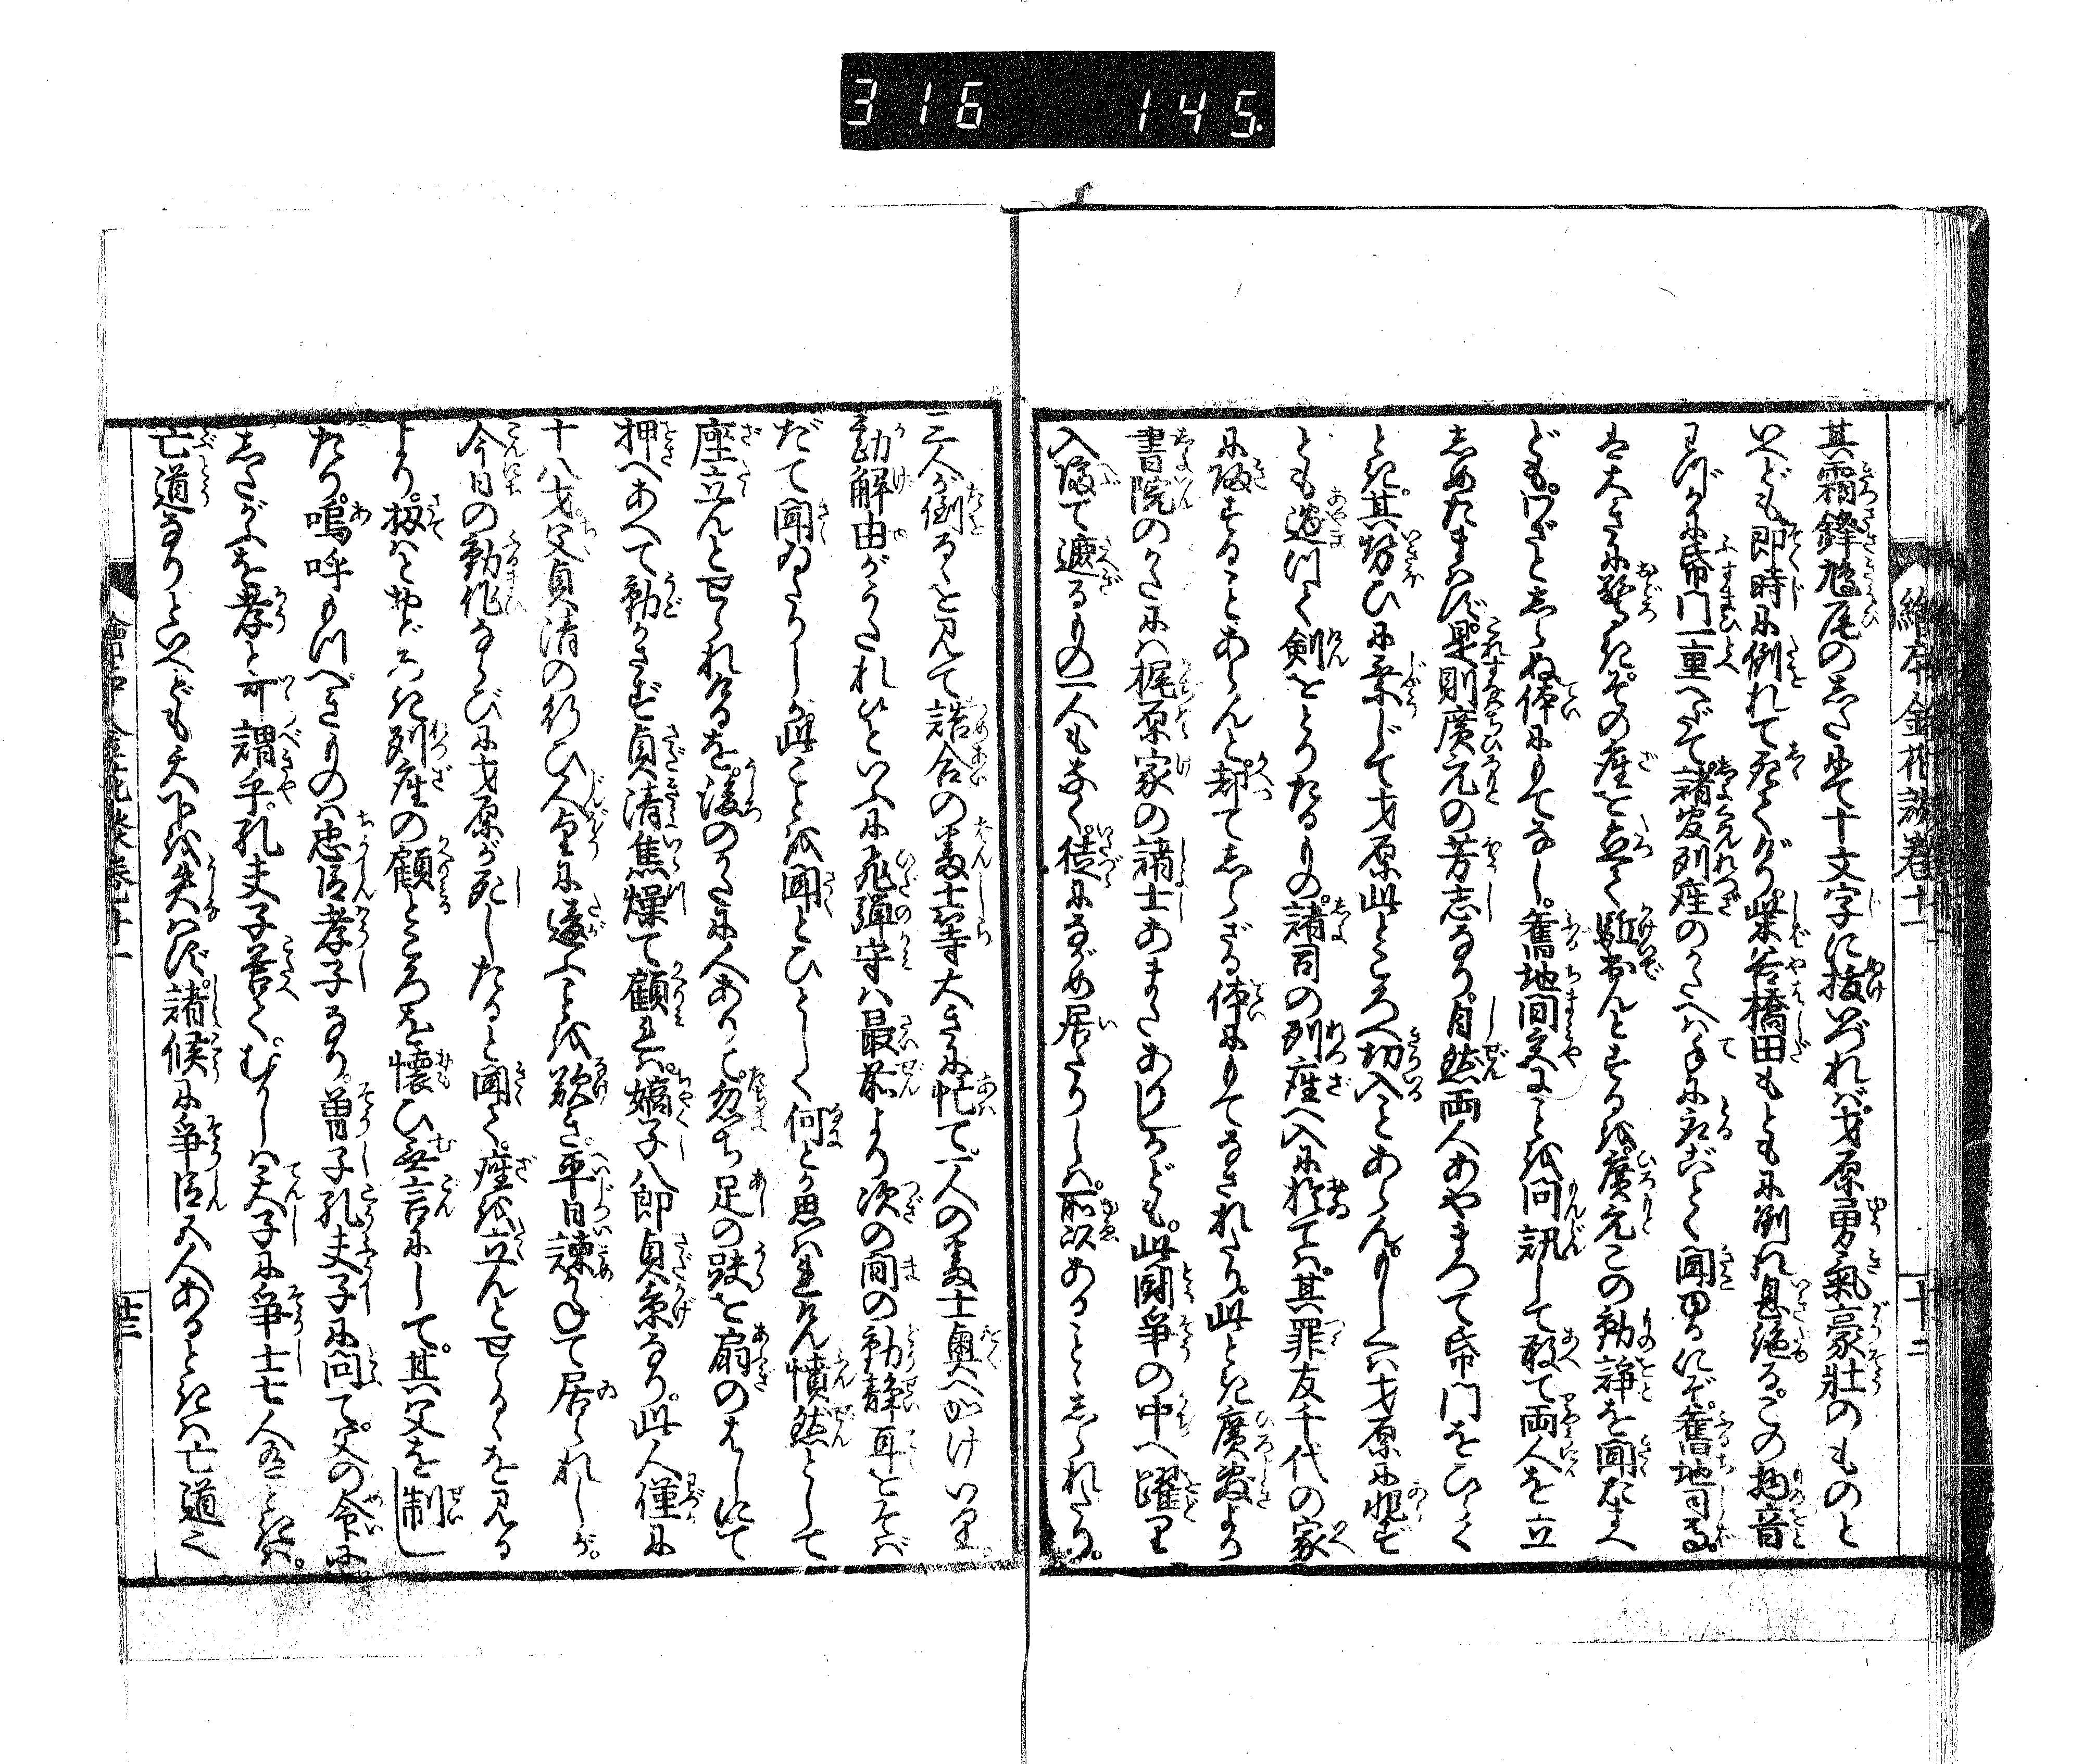 316 145.
繪本金花談巻十一
其霜鋒鳩尾のあたりまで十文字に抜いづれば才原勇氣豪壮のものと
いへども即時に倒れて死てげり柴谷橋田もともに倒れ息絶る。この物音
わづかに帋門一重へだて諸安列座のかたへは手に取ごとく聞ゆるにぞ舊地司馬
は大きに驚きその座を立て駈出んとするを廣元この動静を聞たまへ
ども。わざとしらぬ体にもてなし。舊地間宮にことを問訊して敢て両人を立
しめたまはず是則廣元の芳志なり。自然両人あやまつて帋門をひらく
とき。其勢ひに乗じて才原此ところへ切入とあらん。もしくは才原に非ず
とも過つて剣をとりたるもの。諸司の列座へ入に於ては。其罪友千代の家
に帰することあらんと。却てしらざる体にもてなされたり。此とき廣安より
書院のかたには梶原家の諸士あまたありしかども。此闘争の中へ躍り
入隔て遮るもの一人もなく。徒にながめ居たりしは。所以あることとしられたり。
三人が倒るを見て詰合の番士等大きに忙て。一人の番士奥へかけいり
勘解由がうたれしといふに飛彈守は最前より次の間の動静耳をそば
だて聞ゐたりしが此ことを聞とひとしく何とか思はれけん憤然として
座立んとせられけるを。後のかたに人ありて。忽ち足の趺を扇のはしにて
押へあへて動かさず貞清焦燥て顧れば嫡子八郎貞景なり。此人僅に
十八才父貞清の行ひ人皇に違ふことを歎き。平日諫かねて居られしが。
今日の動作ならびに才原が死したると聞て。座を立んとせらるるを見る
より。扨はとおどろき列座の顧ところを懐ひ無言にして。其父を制し
たり。嗚呼もつべきものは忠臣孝子なり。曽子孔夫子に問て。父の令に
したがふを孝と可謂乎。孔夫子答て。むかしは天子に争士七人有ときは。
亡道なりといへども天下を失はず。諸候に争臣五人あるときは亡道之
十二